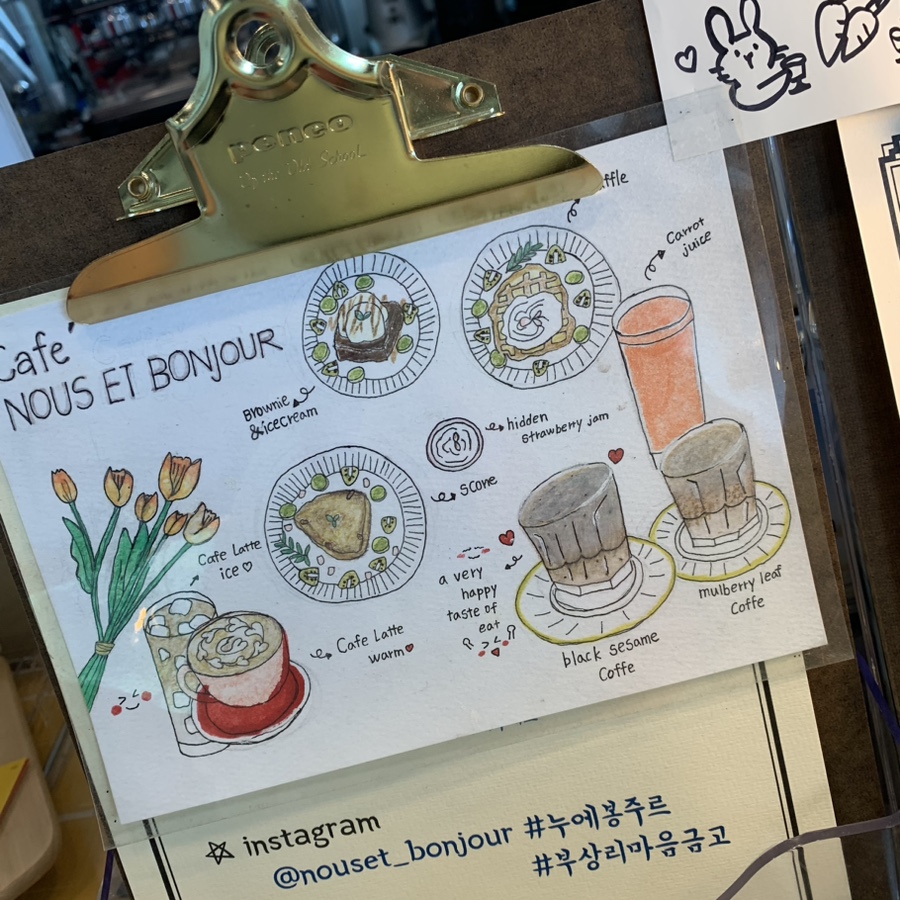 penco
Café
NOUS ET BONJOUR
Brownie
&icecream
Carrot
juice
hidden
strawberry jam
scone
Cafe Latte
ice ♡
a very
happy
taste of
eat
Cafe Latte
warm♥
black sesame
Coffe
mulberry leaf
Coffe
instagram
@nouset_bonjour #누에봉주르
#부상리마음금고